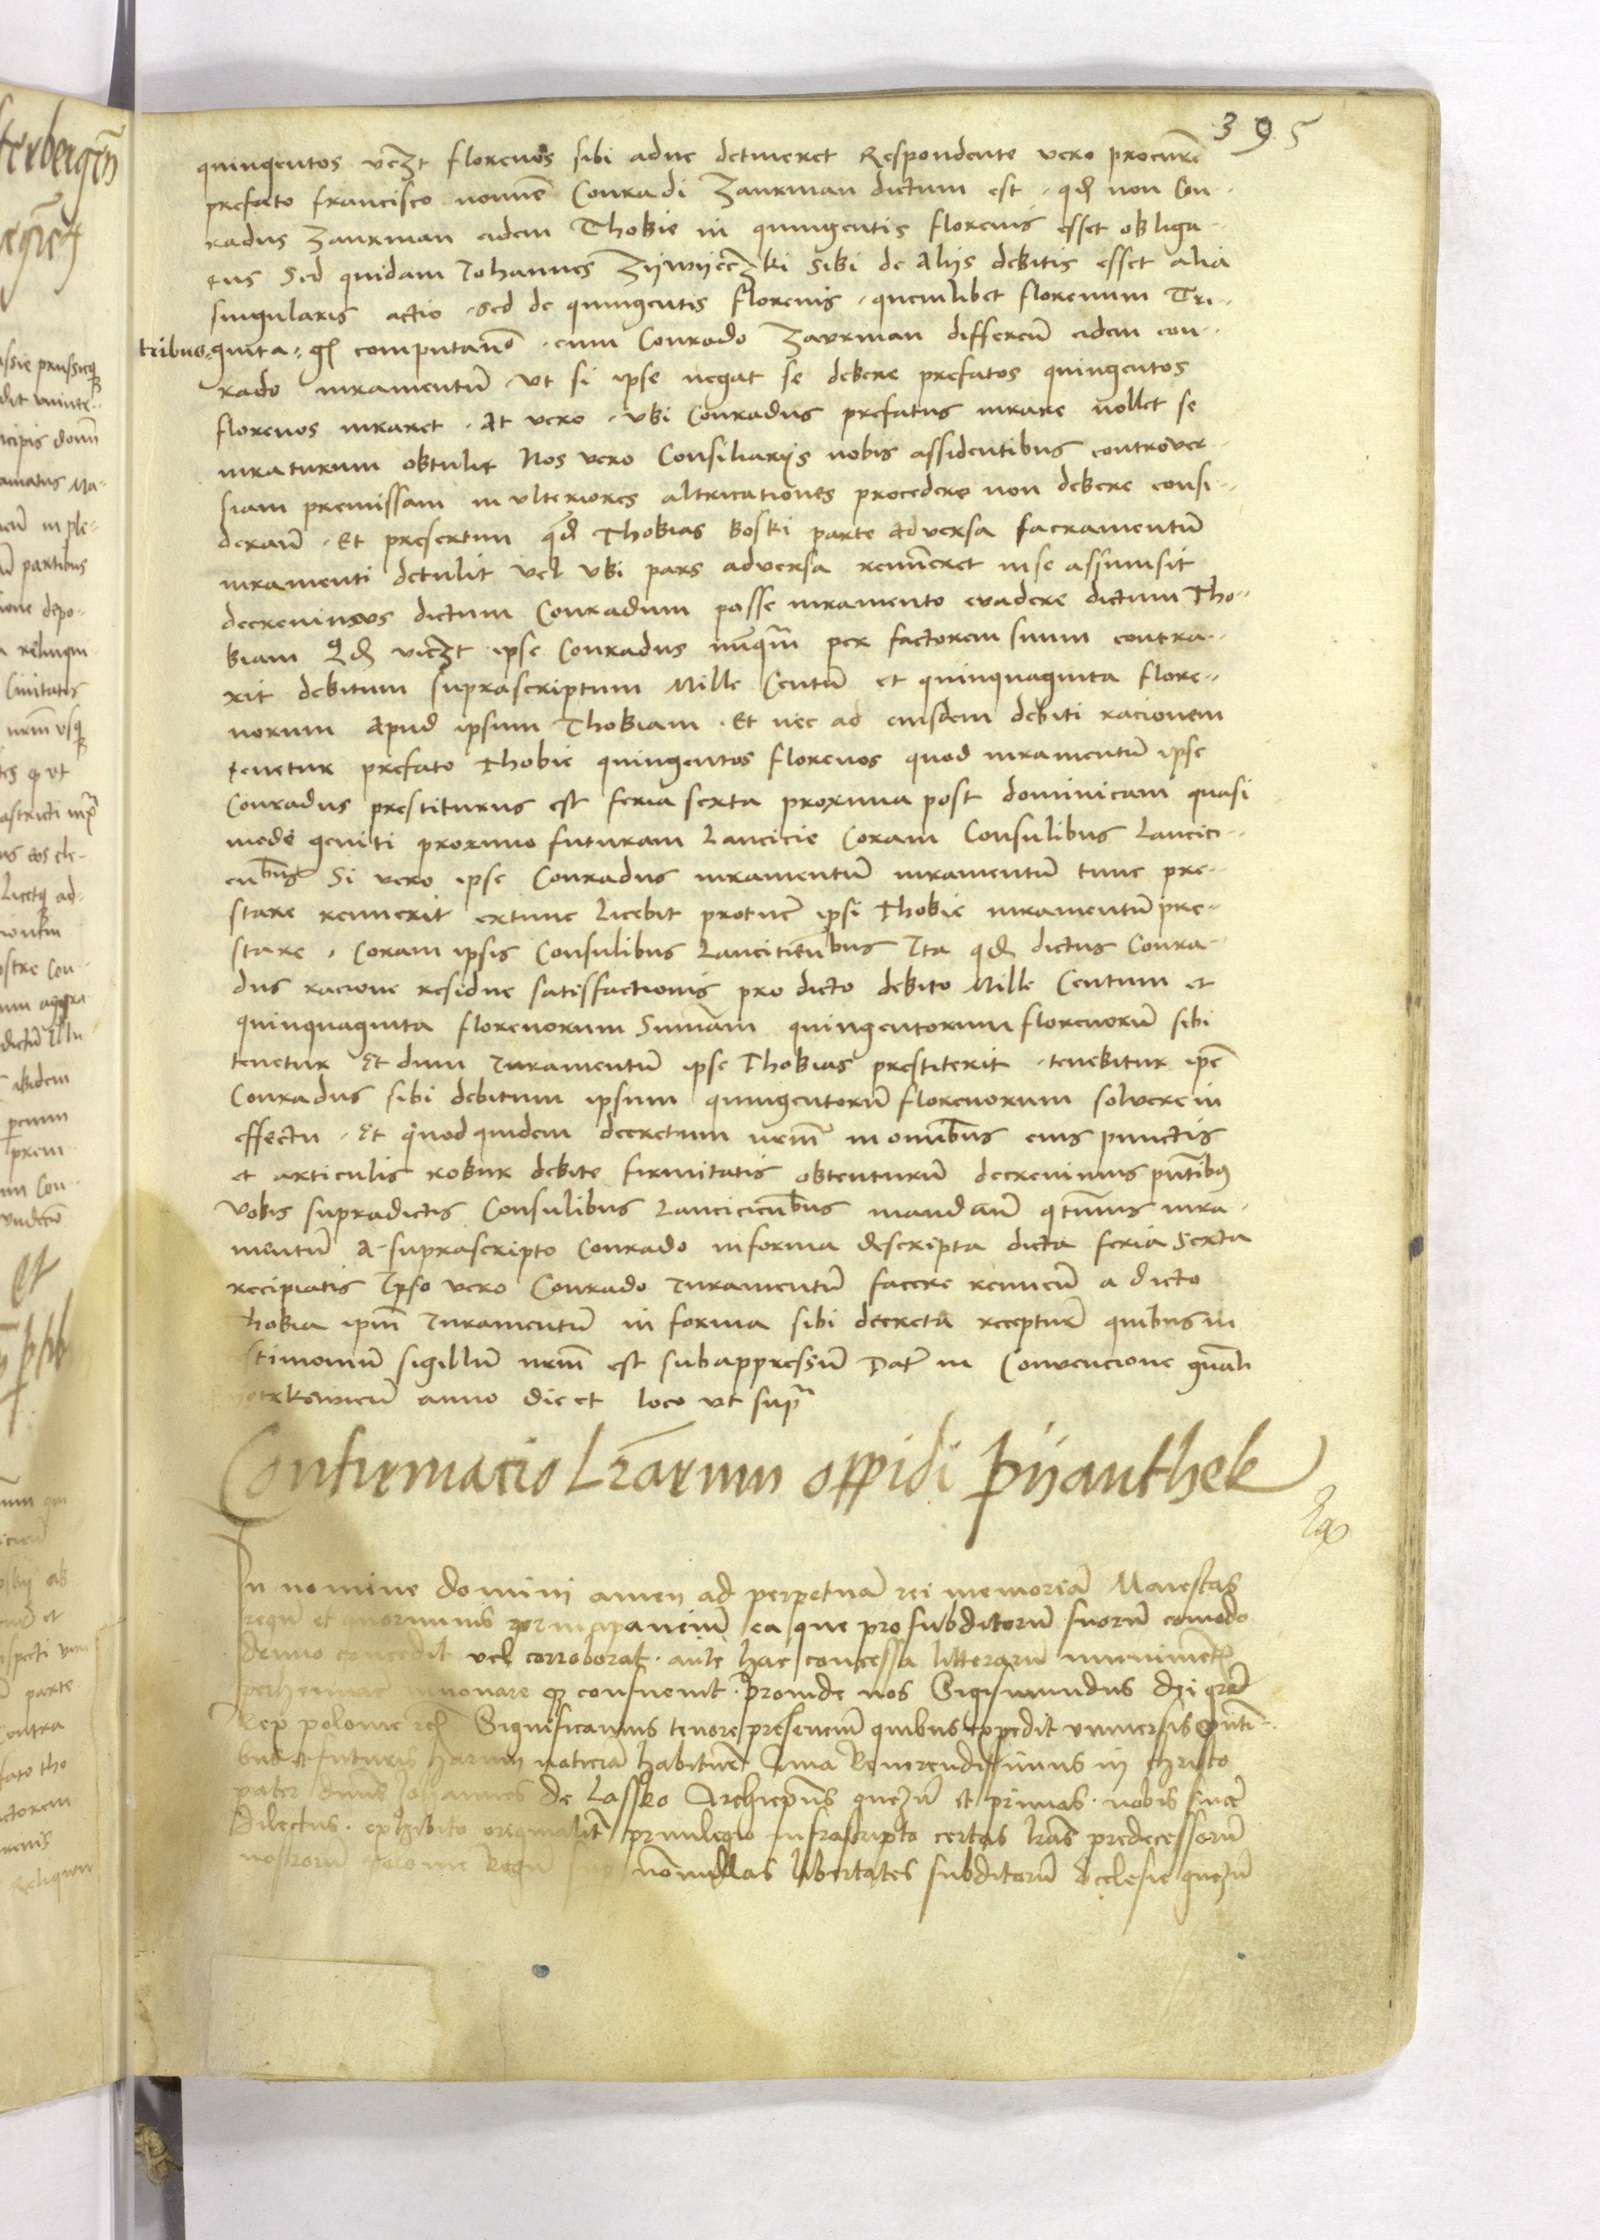 395
quingentos vczt florenos sibi aduc detineret Respondente vero procure
prefato francisco nomine Conradi Zaurman dictum est · qd non Con-
radus Zaurman eidem Thobie in quingentis florenis esset obliga-
tus Sed quidam Johannes Zijwijeczki sibi de Alijs debitis esset alia
singularis actio · sed de quingentis florenis · quemlibet florenum Tri-
tribus · ginta · gs computando · cum Conrado Zaurman differeu eidem con-
rado iuramentu vt si ipse negat se debere prefatos quingentos
florenos iuraret · At vero · vbi Conradus prefatus iurare nollet se
iuraturum obtulit Nos vero Consiliarijs nobis assidentibus controver-
siam premissam in vlteriores altricationes procedere non debere consi-
derau · Et presertim qd Thobias koski parte adversa sacramentu
iuramenti detulit vel vbi pars adversa rennueret in se assumsit
decrevimus dictum Conradum posse iuramento evadere dictum Tho-
biam Qd viczt ipse Conradus nuqm per factorem suum contra-
xit debitum suprascriptum Mille Centu et quinquaginta flore-
norum Apud ipsum Thobiam · Et nec ad eiusdem debiti racionem
tenetur prefato Thobie quingentos florenos quod iuramentu ipse
Conradus prestiturus est feria sexta proxima post dominicam quasi
modo geniti proximo futuram Lancicie Coram Consulibus Lancici-
enbus Si vero ipse Conradus iuramentu iuramentu tunc pre-
stare rennuerit extunc licebit protunc ipsi Thobie iuramentu pre-
stare · Coram ipsis Consulibus Lancitienbus Ita qd dictus Conra-
dus racione residue satisfactionis pro dicto debito Mille Centum et
quinquaginta florenorum Summam quingentorum florenoru sibi
tenetur Et dum Iuramentu ipse Thobias prestiterit · tenebitur ipe
Conradus sibi debitum ipsum quingentoru florenorum solvere in
effectu · Et quod quidem decretum nrm in omnibus eius punctis
et articulis robur debite firmitatis obtenturu decrevimus pntibus
Vobis supradictis Consulibus Lanciciensibus mandau qtnus iura-
mentu A suprascripto Conrado in forma descripta dicta feria Sexta
recipiatis Ipso vero Conrado Iuramentu facere rennueu a dicto
hobia ipm Iuramentu in forma sibi decreta recepturi quibus in
stimoniu sigillu nrm est subappressu Dat in Convencione gnali
otrkowien anno die et loco vt supra
Confirmacio Lrarum oppidi Pijanthek
In nomine domini amen ad perpetua rei memoria Maiestas
regu et ea que pro subditoru suoru comodo
denuo concedit vel corroborat · aut hac concessa litteraru muniment
perhennare innovare q consuevit · proinde nos Sigismundus dei gra
Rex polonie Significamus tenore presenciu quibus expedit vniversis pnti-
bus et futuris harum noticia habituris Quia Reverendissimus in christo
pater dnus Johannes de Lassko Archiepus gnezn et primas · nobis since
dilectus · exhibito originalit privilegio infrascripto certas lras predecessoru
nostroru polonie Regu sup nonnullas libertates subditoru Ecclesie gnezn